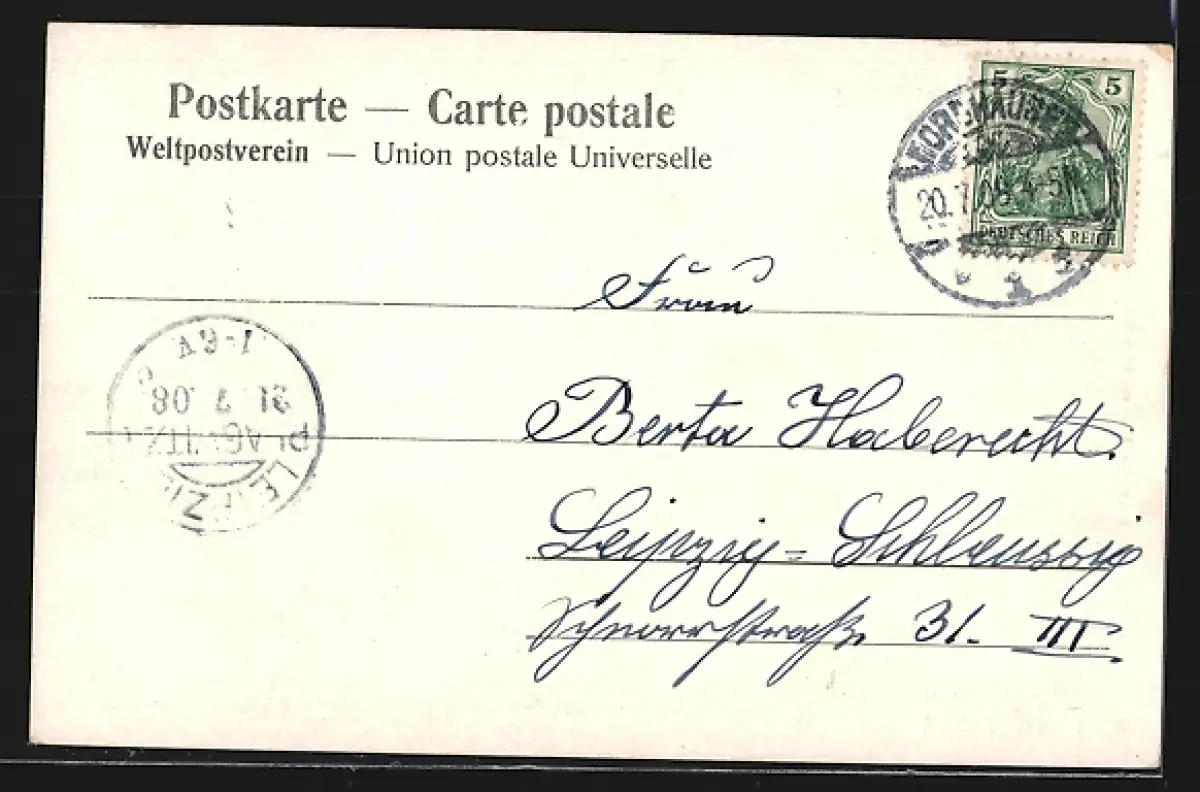 Postkarte — Carte postale
Weltpostverein — Union postale Universelle
5 5
NORDHAUSEN
20.7.08 4-5N
DEUTSCHES REICH
Frau
Berta Haberecht.
Leipzig-Schleussig
Schnorrstraße 31. III
LEIPZIG
PLAGWITZ
21.7.08